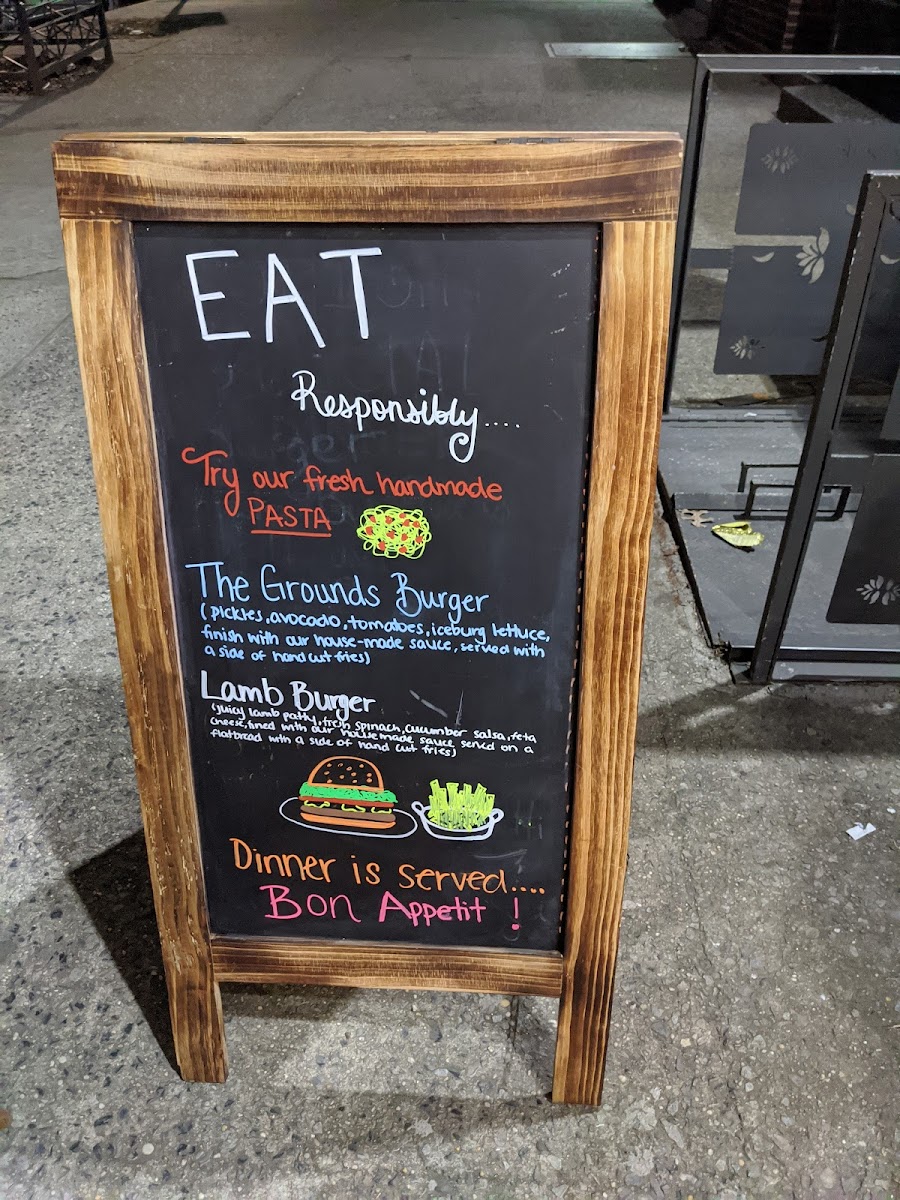 EAT
Responsibly....
Try our fresh handmade
PASTA
The Grounds Burger
(pickles, avocado, tomatoes, iceburg lettuce,
finish with our house-made sauce, served with
a side of hand cut fries)
Lamb Burger
(juicy lamb patty, fresh spinach, cucumber salsa, feta
cheese, fined with our house made sauce served on a
flatbread with a side of hand cut fries)
Dinner is served....
Bon Appetit !